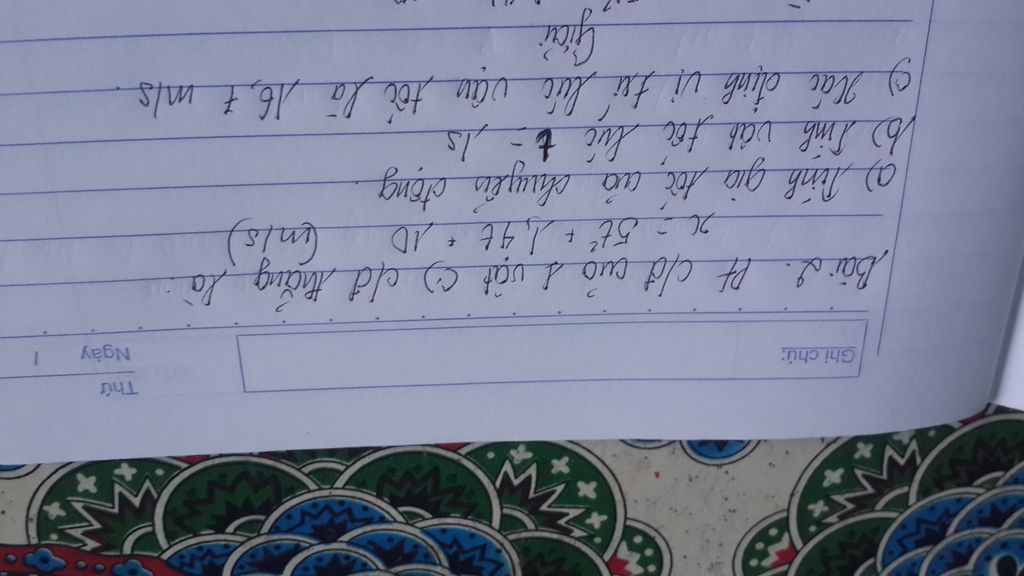 Thứ
Ngày
Ghi chú:
Bài 2. Pt c/đ của 1 vật c) c/đ thẳng là:
x = 5t² + 1,4t + 10 (m/s)
a) Tính gia tốc của chuyển động.
b) Tính vận tốc lúc t = 1s
c) Xác định vị trí lúc vận tốc là 16,7 m/s.
Giải